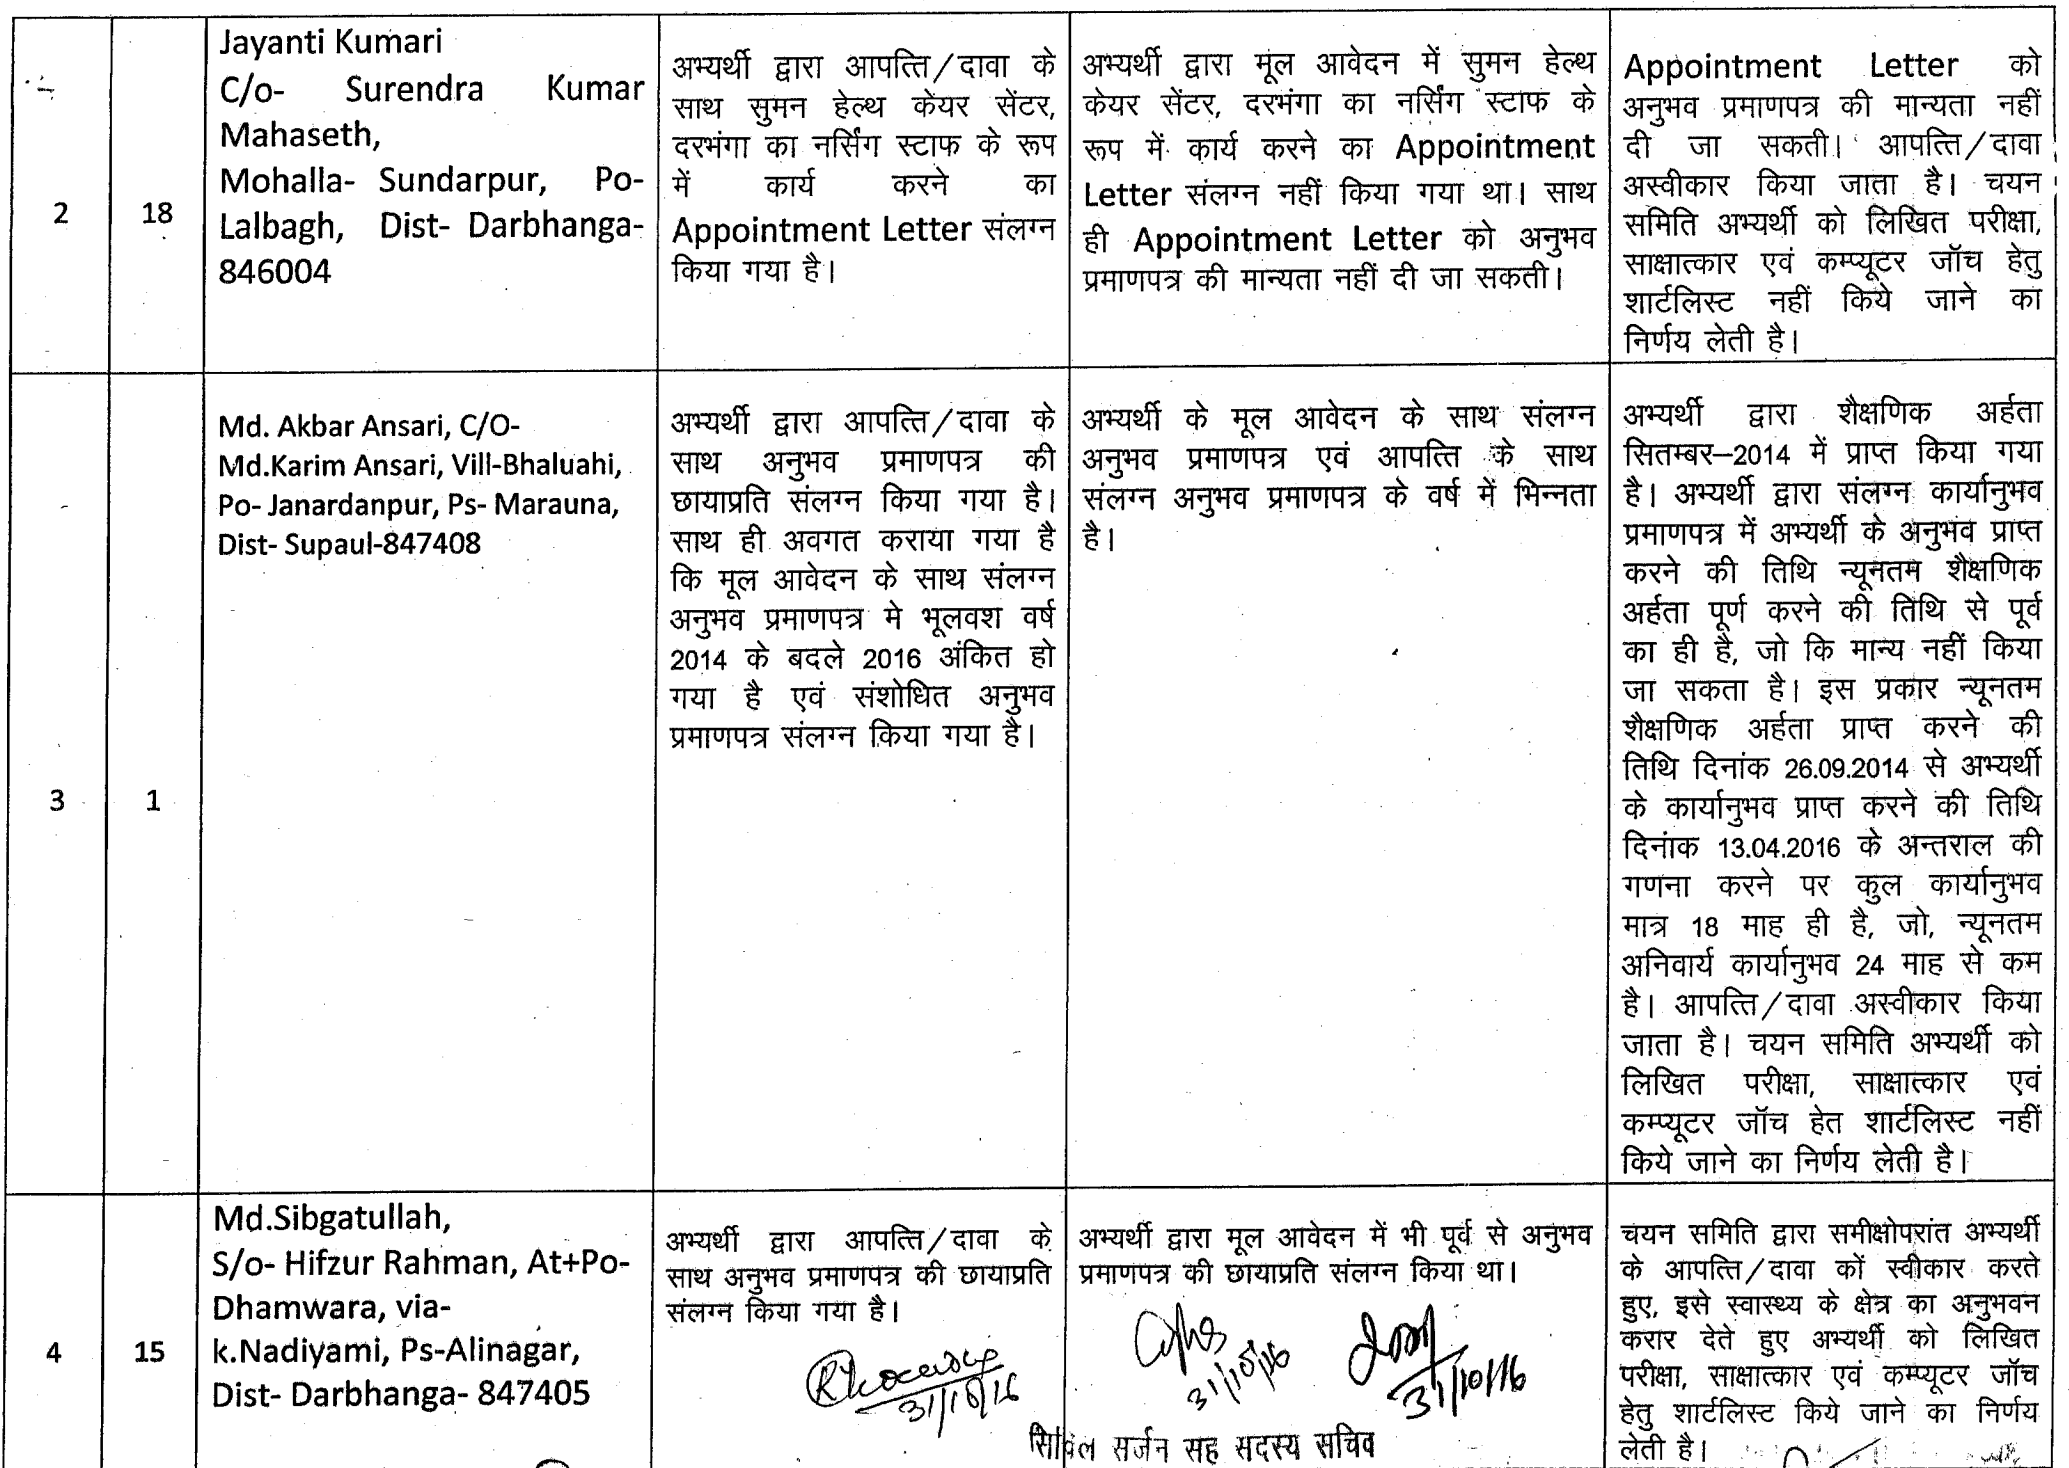 2
18
Jayanti Kumari
C/o- Surendra Kumar
Mahaseth,
Mohalla- Sundarpur, Po-
Lalbagh, Dist- Darbhanga-
846004
अभ्यर्थी द्वारा आपत्ति/दावा के
साथ सुमन हेल्थ केयर सेंटर,
दरभंगा का नर्सिंग स्टाफ के रूप
में कार्य करने का
Appointment Letter संलग्न
किया गया है।
अभ्यर्थी द्वारा मूल आवेदन में सुमन हेल्थ
केयर सेंटर, दरभंगा का नर्सिंग स्टाफ के
रूप में कार्य करने का Appointment
Letter संलग्न नहीं किया गया था। साथ
ही Appointment Letter को अनुभव
प्रमाणपत्र की मान्यता नहीं दी जा सकती।
Appointment Letter को
अनुभव प्रमाणपत्र की मान्यता नहीं
दी जा सकती। आपत्ति/दावा
अस्वीकार किया जाता है। चयन
समिति अभ्यर्थी को लिखित परीक्षा,
साक्षात्कार एवं कम्प्यूटर जॉच हेतु
शार्टलिस्ट नहीं किये जाने का
निर्णय लेती है।
3
1
Md. Akbar Ansari, C/O-
Md.Karim Ansari, Vill-Bhaluahi,
Po- Janardanpur, Ps- Marauna,
Dist- Supaul-847408
अभ्यर्थी द्वारा आपत्ति/दावा के
साथ अनुभव प्रमाणपत्र की
छायाप्रति संलग्न किया गया है।
साथ ही अवगत कराया गया है
कि मूल आवेदन के साथ संलग्न
अनुभव प्रमाणपत्र मे भूलवश वर्ष
2014 के बदले 2016 अंकित हो
गया है एवं संशोधित अनुभव
प्रमाणपत्र संलग्न किया गया है।
अभ्यर्थी के मूल आवेदन के साथ संलग्न
अनुभव प्रमाणपत्र एवं आपत्ति के साथ
संलग्न अनुभव प्रमाणपत्र के वर्ष में भिन्नता
है।
अभ्यर्थी द्वारा शैक्षणिक अर्हता
सितम्बर–2014 में प्राप्त किया गया
है। अभ्यर्थी द्वारा संलग्न कार्यानुभव
प्रमाणपत्र में अभ्यर्थी के अनुभव प्राप्त
करने की तिथि न्यूनतम शैक्षणिक
अर्हता पूर्ण करने की तिथि से पूर्व
का ही है, जो कि मान्य नहीं किया
जा सकता है। इस प्रकार न्यूनतम
शैक्षणिक अर्हता प्राप्त करने की
तिथि दिनांक 26.09.2014 से अभ्यर्थी
के कार्यानुभव प्राप्त करने की तिथि
दिनांक 13.04.2016 के अन्तराल की
गणना करने पर कुल कार्यानुभव
मात्र 18 माह ही है, जो, न्यूनतम
अनिवार्य कार्यानुभव 24 माह से कम
है। आपत्ति/दावा अस्वीकार किया
जाता है। चयन समिति अभ्यर्थी को
लिखित परीक्षा, साक्षात्कार एवं
कम्प्यूटर जॉच हेत शार्टलिस्ट नहीं
किये जाने का निर्णय लेती है।
4
15
Md.Sibgatullah,
S/o- Hifzur Rahman, At+Po-
Dhamwara, via-
k.Nadiyami, Ps-Alinagar,
Dist- Darbhanga- 847405
अभ्यर्थी द्वारा आपत्ति/दावा के
साथ अनुभव प्रमाणपत्र की छायाप्रति
संलग्न किया गया है।
31/10/16
अभ्यर्थी द्वारा मूल आवेदन में भी पूर्व से अनुभव
प्रमाणपत्र की छायाप्रति संलग्न किया था।
31/10/16
31/10/16
सिविल सर्जन सह सदस्य सचिव
चयन समिति द्वारा समीक्षोपरांत अभ्यर्थी
के आपत्ति/दावा कों स्वीकार करते
हुए, इसे स्वास्थ्य के क्षेत्र का अनुभवन
करार देते हुए अभ्यर्थी को लिखित
परीक्षा, साक्षात्कार एवं कम्प्यूटर जॉच
हेतु शार्टलिस्ट किये जाने का निर्णय
लेती है।